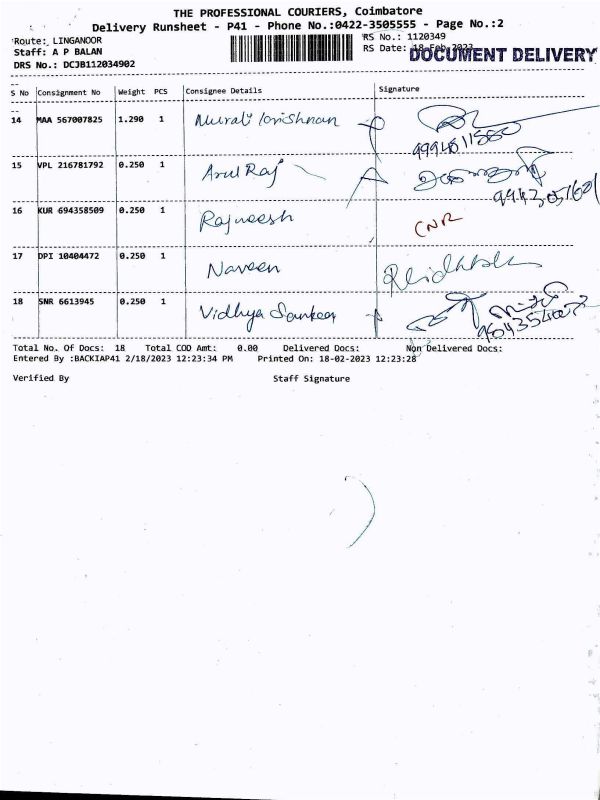 THE PROFESSIONAL COURIERS, Coimbatore
Delivery Runsheet - P41 - Phone No.:0422-3505555 - Page No.:2
Route: LINGANOOR
RS No.: 1120349
Staff: A P BALAN
RS Date: 18-Feb-2023
DOCUMENT DELIVERY
DRS No.: DCJB112034902
S No Consignment No Weight PCS Consignee Details Signature
14 MAA 567007825 1.290 1 Murali
15 VPL 216781792 0.250 1 Arul Raj
16 KUR 694358509 0.250 1 Rajneesh CNR
17 DPI 10404472 0.250 1 Naveen
18 SNR 6613945 0.250 1 Vidhya Sankar
Total No. Of Docs: 18 Total COD Amt: 0.00 Delivered Docs: Non Delivered Docs:
Entered By :BACKIAP41 2/18/2023 12:23:34 PM Printed On: 18-02-2023 12:23:28
Verified By Staff Signature